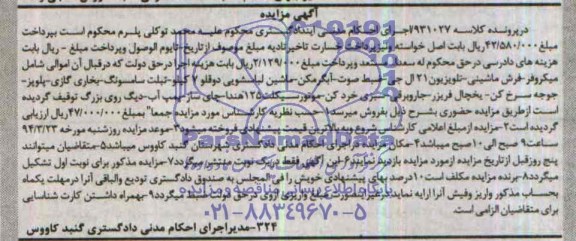 آگهی مزایده
درپرونده کلاسه ۹۳۱۰۲۷ اجرای احکام مدنی محکوم علیه محمد توکلی پلرم محکوم است بپرداخت
مبلغ ۴۲/۵۸۰/۰۰۰ ریال بابت اصل خواسته خسارت تاخیر تادیه مبلغ موصوف از تاریخ تایوم الوصول وپرداخت مبلغ - ریال بابت
هزینه های دادرسی در حق محکوم له وپرداخت مبلغ ۲/۱۲۹/۰۰۰ ریال بابت هزینه اجرا درحق دولت که درقبال آن اموالی شامل
میکروفر-فرش ماشینی-تلویزیون ۲۱ ال جی-ضبط صوت-آبگرمکن-ماشین لباسشویی دوقلو ۷ کیلو-تبلت سامسونگ-بخاری گازی-پلوپز-
جوجه سرخ کن-یخچال فریزر-جاروبرقی-سبزی خرد کن-موتورسیکلت ۱۲۵ هندا-چای ساز-پمپ آب-دیگ روی بزرگ توقیف گردیده
است از طریق مزایده حضوری بشرح ذیل بفروش میرسد: حسب نظریه کارشناس مورد مزایده جمعا" بمبلغ ۴۷/۰۰۰/۰۰۰ ریال ارزیابی
گردیده است ۲-مزایده از مبلغ اعلامی کارشناس شروع وبه بالاترین قیمت پیشنهادی فروخته میشود ۳-موعد مزایده روزشنبه مورخه ۹۴/۳/۲۳
ساعت ۹ صبح الی ۱۰ صبح میباشد ۴-مکان مزایده اجرای احکام مدنی دادگستری شهرستان گنبد کاووس میباشد ۵-متقاضیان میتوانند
پنج روزقبل ازتاریخ مزایده ازمورد مزایده بازدید نمایند ۶-این آگهی فقط دریک نوبت منتشر میگردد ۷-مزایده مذکور برای نوبت اول تشکیل
میگردد ۸-برنده مزایده مکلف است ۱۰ درصد بهای پیشنهادی خویش را فی المجلس به صندوق دادگستری تودیع والباقی آنرا درمهلت یکماه
بحساب مذکور واریز وفیش آنرا ارایه نماید درغیر اینصورت مبلغ واریزی ازوی درحق دولت ضبط میگردد ۹-بهمراه داشتن کارت شناسایی
برای متقاضیان الزامی است.
۳۲۴-مدیراجرای احکام مدنی دادگستری گنبد کاووس
پایگاه اطلاع رسانی مناقصه و مزایده
۰۲۱-۸۸۳۴۹۶۷۰-۵